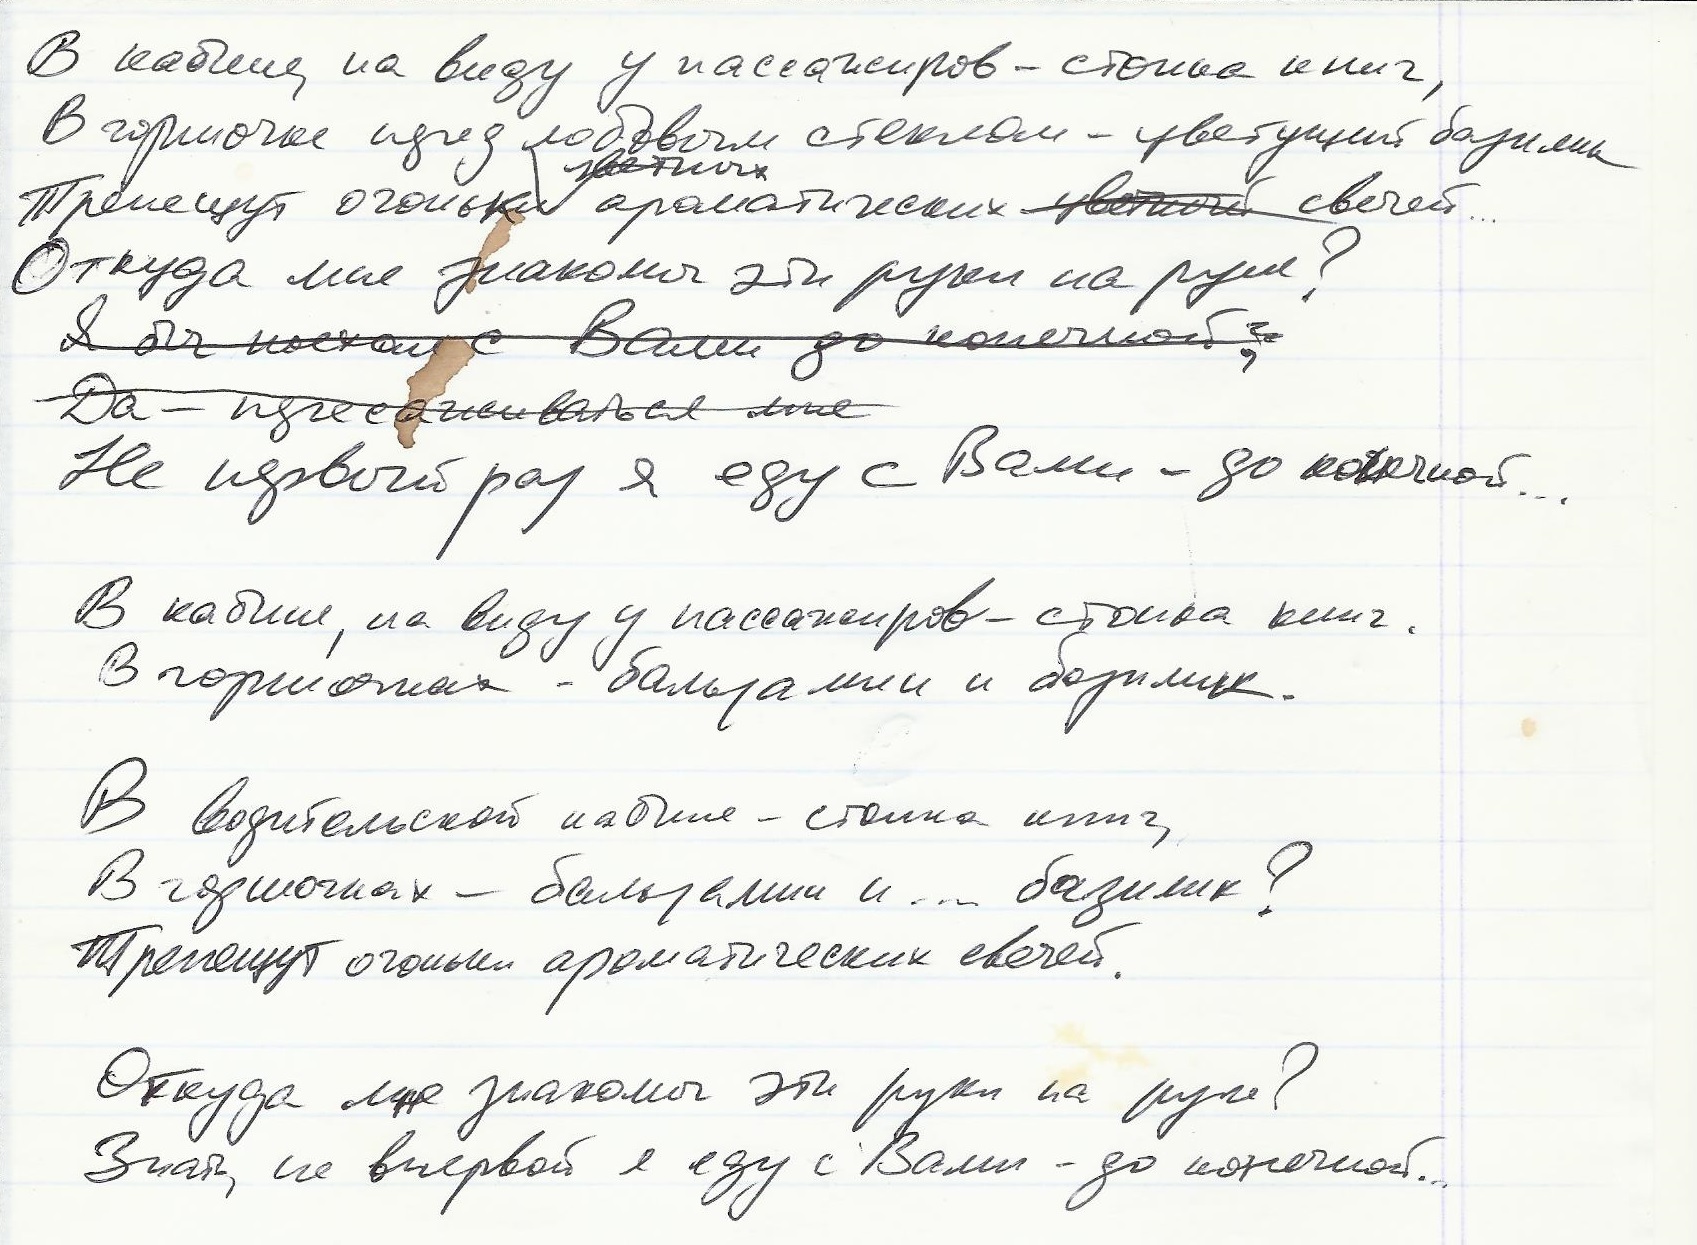 В кабине, на виду у пассажиров – стопка книг,
В горшочке перед лобовым стеклом – цветущий базилик
цветных
Трепещут огоньки ароматических цветной свечей...
Откуда мне знакомы эти руки на руле?
Я бы поехал с Вами до конечной?
Да – пересаживаться мне
Не первый раз я еду с Вами – до конечной...
В кабине, на виду у пассажиров – стопка книг.
В горшочках – бальзамин и базилик.
В водительской кабине – стопка книг,
В горшочках – бальзамин и .... базилик?
Трепещут огоньки ароматических свечей.
Откуда мне знакомы эти руки на руле?
Знать, не впервой я еду с Вами – до конечной...